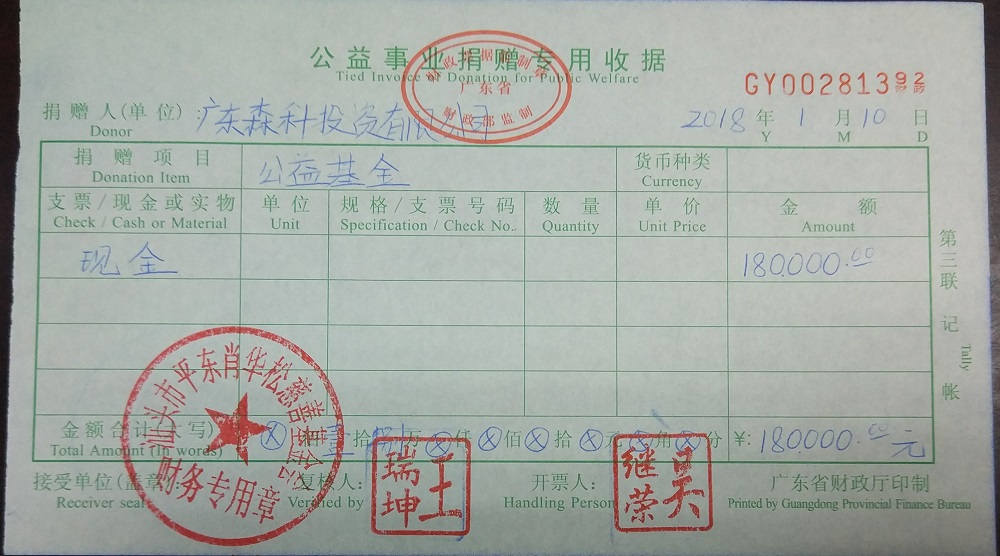 公益事业捐赠专用收据
Tied Invoice of Donation for Public Welfare
广东省
财政部监制
GY00281392
捐赠人(单位): 广东森科投资有限公司 2018 年 1 月 10 日
Donor Y M D
捐赠项目 公益基金 货币种类
Donation Item Currency
支票/现金或实物 单位 规格/支票号码 数量 单价 金额
Check / Cash or Material Unit Specification / Check No.. Quantity Unit Price Amount
现金 180,000.00
第三联 记帐
Tally
汕头市平东肖华松慈善基金会
财务专用章
金额合计(大写) 拾 捌 万 ⊗ 仟 ⊗ 佰 ⊗ 拾 ⊗ 元 ⊗ 角 ⊗ 分 ¥: 180,000.00 元
Total Amount (In words)
接受单位(盖章): 复核人: 王瑞坤 开票人: 吴继荣 广东省财政厅印制
Receiver seal Verified by Handling Person Printed by Guangdong Provincial Finance Bureau